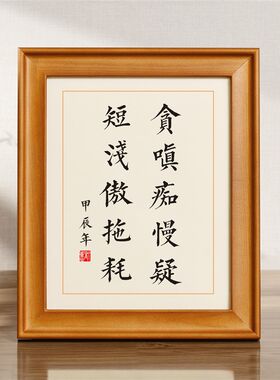 貪嗔痴慢疑
短淺傲拖耗
甲辰年